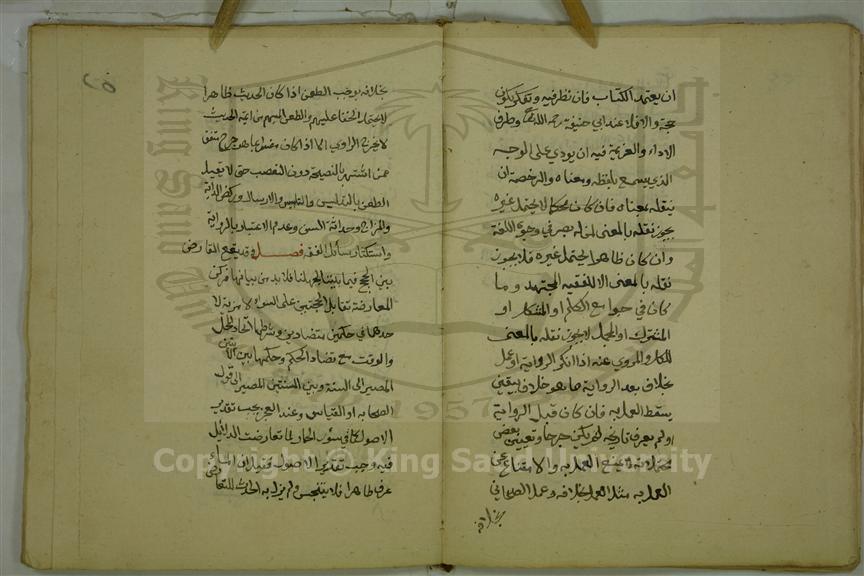 ان يعتمد الكتاب فان نظر فيه وتفكر يكون
حجة والا فلا عند ابي حنيفة رحمه الله تعالى وطرف
الاداء والعزيمة فيه ان يودي على الوجه
الذي يسمع بلفظه ومعناه والرخصة ان
ينقله بمعناه فان كان محكما لا يحتمل غيره
يجوز نقله بالمعنى لمن له بصر في وجوه اللغة
وان كان ظاهرا يحتمل غيره فلا يجوز
نقله بالمعنى الا للفقيه المجتهد وما
كان في جوامع الكلم او المشكل او
المشترك او المجمل لا يجوز نقله بالمعنى
للكل والمروي عنه اذا انكر الرواية او عمل
بخلافه بعد الرواية مما هو خلاف بيقين
يسقط العمل به فان كان قبل الرواية
او لم يعرف تاريخه لم يكن جرحا وتعيين بعض
محتملاته لا يمنع العمل به والامتناع عن
العمل به مثل العمل بخلافه وعمل الصحابي
بخلافه
بخلافه يوجب الطعن اذا كان الحديث ظاهرا
لا يحتمل الخفا عليهم والطعن المبهم من ائمة الحديث
لا يجرح الراوي الا اذا كان مفسرا بما هو جرح متفق
ممن اشتهر بالنصيحة دون التعصب حتى لا يقبل
الطعن بالتدليس والتلبيس والارسال وركض الدابة
والمزاح وحداثة السن وعدم الاعتياد بالرواية
واستكثار مسائل الفقه فصل وقد يقع التعارض
بين الحجج فيما بيننا لجهلنا فلا بد من بيانها فركن
المعارضة تقابل الحجتين على السواء لا مزية لا
حدهما في حكمين متضادين وشرطها اتحاد المحل
والوقت مع تضاد الحكم وحكمها بين الايتين
المصير الى السنة وبين السنتين المصير الى قول
الصحابه او القياس وعند العجز يجب تقرير
الاصول كما في سؤر الحمار لما تعارضت الدلائل
فيه وجب تقرير الاصول فقيل ان الماء
عرف طاهرا فلا يتنجس ولم يزل به الحدث للتعارض
Copyright © King Saud University
1957